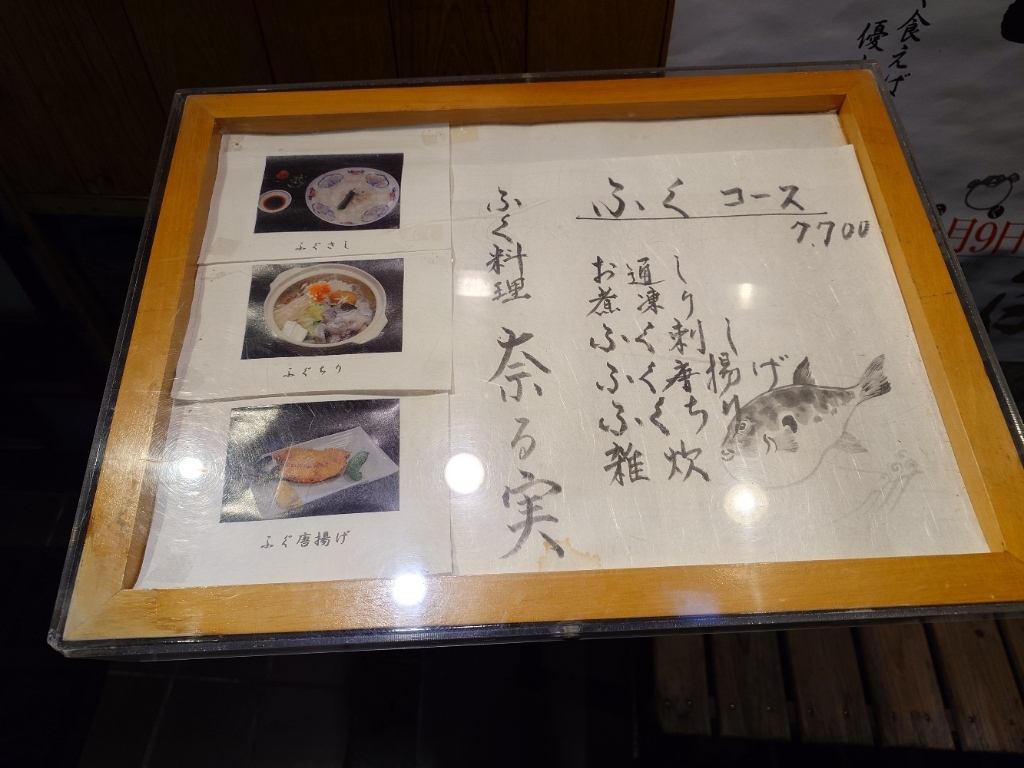 ふぐさし
ふぐちり
ふぐ唐揚げ
ふく料理 奈る実
ふく コース
7.700
お通し
煮凍り
ふく刺し
ふく唐揚げ
ふくちり
雑炊
食えば
優
月9日